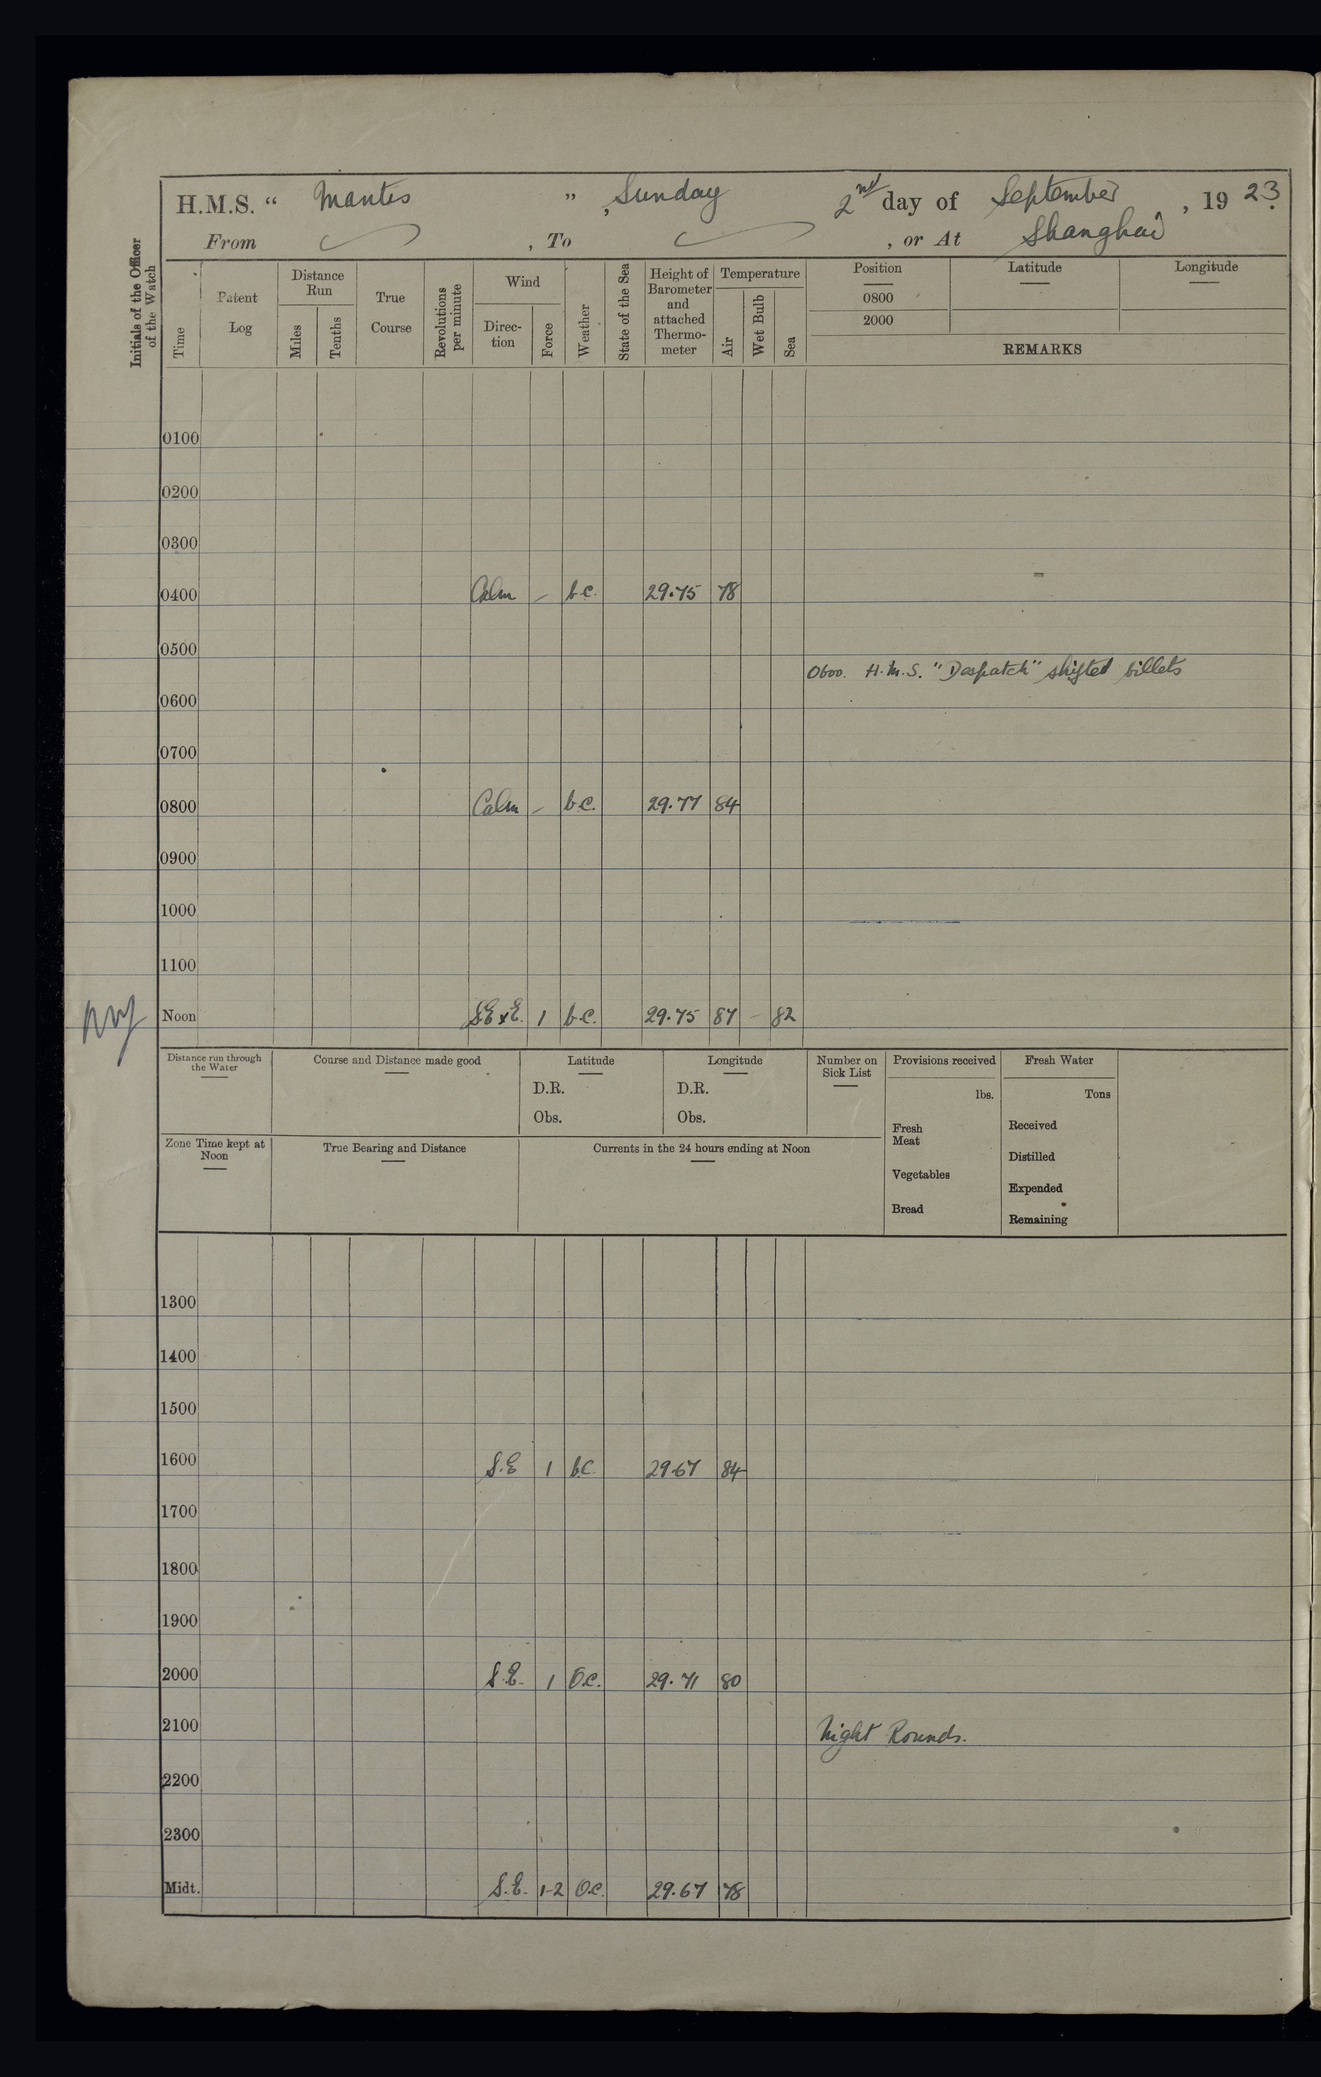 H.M.S. “ Mantis ” , Sunday 2nd day of September , 19 23.
From , To , or At Shanghai
Initials of the Officer of the Watch
Time
Patent Log
Distance Run
Miles
Tenths
True Course
Revolutions per minute
Wind
Direc-tion
Force
Weather
State of the Sea
Height of Barometer and attached Thermo-meter
Temperature
Air
Wet Bulb
Sea
Position Latitude Longitude
0800
2000
REMARKS
0100
0200
0300
0400 Calm – b.c. 29.75 78
0500
0600. H.M.S. "Despatch" shifted billets
0600
0700
0800 Calm – b.c. 29.77 84
0900
1000
1100
Noon SE x E. 1 b.c. 29.75 87 – 82
Distance run through the Water
Course and Distance made good
Latitude
D.R.
Obs.
Longitude
D.R.
Obs.
Number on Sick List
Provisions received
lbs.
Fresh Meat
Vegetables
Bread
Fresh Water
Tons
Received
Distilled
Expended
Remaining
Zone Time kept at Noon
True Bearing and Distance
Currents in the 24 hours ending at Noon
1300
1400
1500
1600 S.E 1 b.c. 29.67 84
1700
1800
1900
2000 S.E. 1 O.c. 29.71 80
2100 Night Rounds.
2200
2300
Midt. S.E. 1-2 O.c. 29.67 78